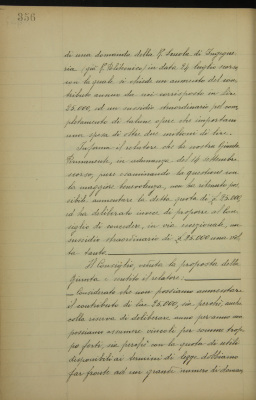 356
di una domanda della R. Scuola di Ingegne-
ria (già R. Politecnico) in data 24 luglio scorso
con la quale si chiede un aumento del con-
tributo annuo da noi corrisposto in Lire
25.000, ed un sussidio straordinario pel com-
pletamento di talune opere che importeranno
una spesa di oltre due milioni di lire.
Informa il relatore che la nostra Giunta
Permanente, in adunanza del 14 settembre
scorso, pur esaminando la questione con
la maggiore benevolenza, non ha ritenuto pos-
sibile aumentare la detta quota di £ 25.000,
ed ha deliberato invece di proporre al Con-
siglio di concedere, in via eccezionale, un
sussidio straordinario di £ 25.000 una vol-
ta tanto.
Il Consiglio, udita la proposta della
Giunta e sentito il relatore;
Considerato che non possiamo aumentare
il contributo di Lire 25.000, sia perché, anche
colla riserva di deliberare anno per anno non
possiamo assumere vincoli per somme trop-
po forti, sia perché con la quota di utili
disponibili ai termini di legge dobbiamo
far fronte ad un grande numero di doman-